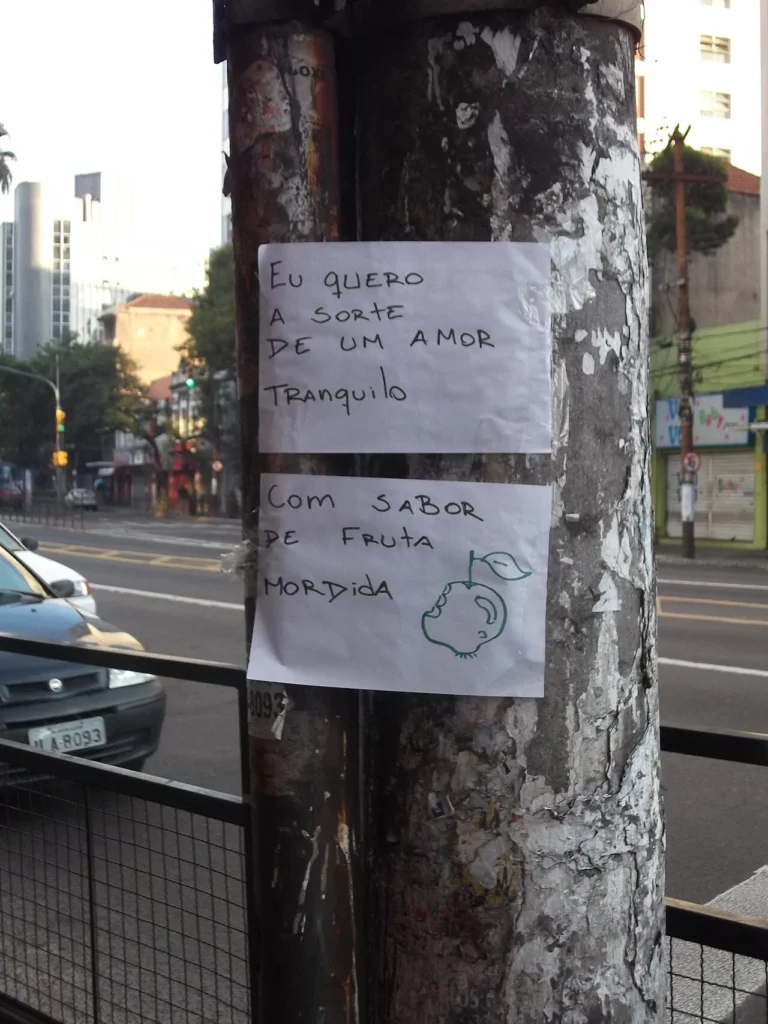 Eu QUERO
A SORTE
DE UM AMOR
TRANquilo
Com SABOR
DE FRutA
MORDidA
8093